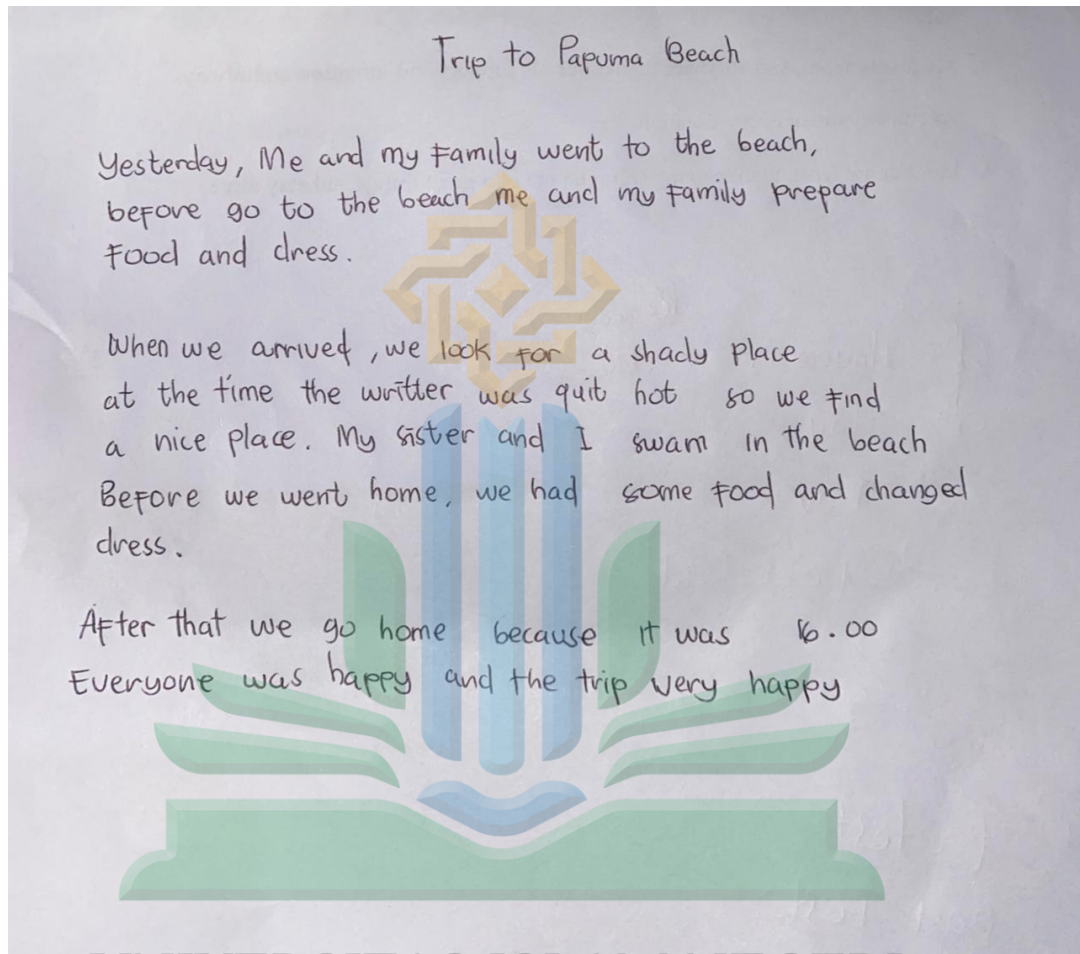 Trip to Papuma Beach
Yesterday, Me and my Family went to the beach,
before go to the beach me and my Family prepare
Food and dress.
When we arrived, we look for a shady place
at the time the writter was quit hot so we find
a nice place. My sister and I swam in the beach
Before we went home, we had some food and changed
dress.
After that we go home because it was 16.00
Everyone was happy and the trip very happy